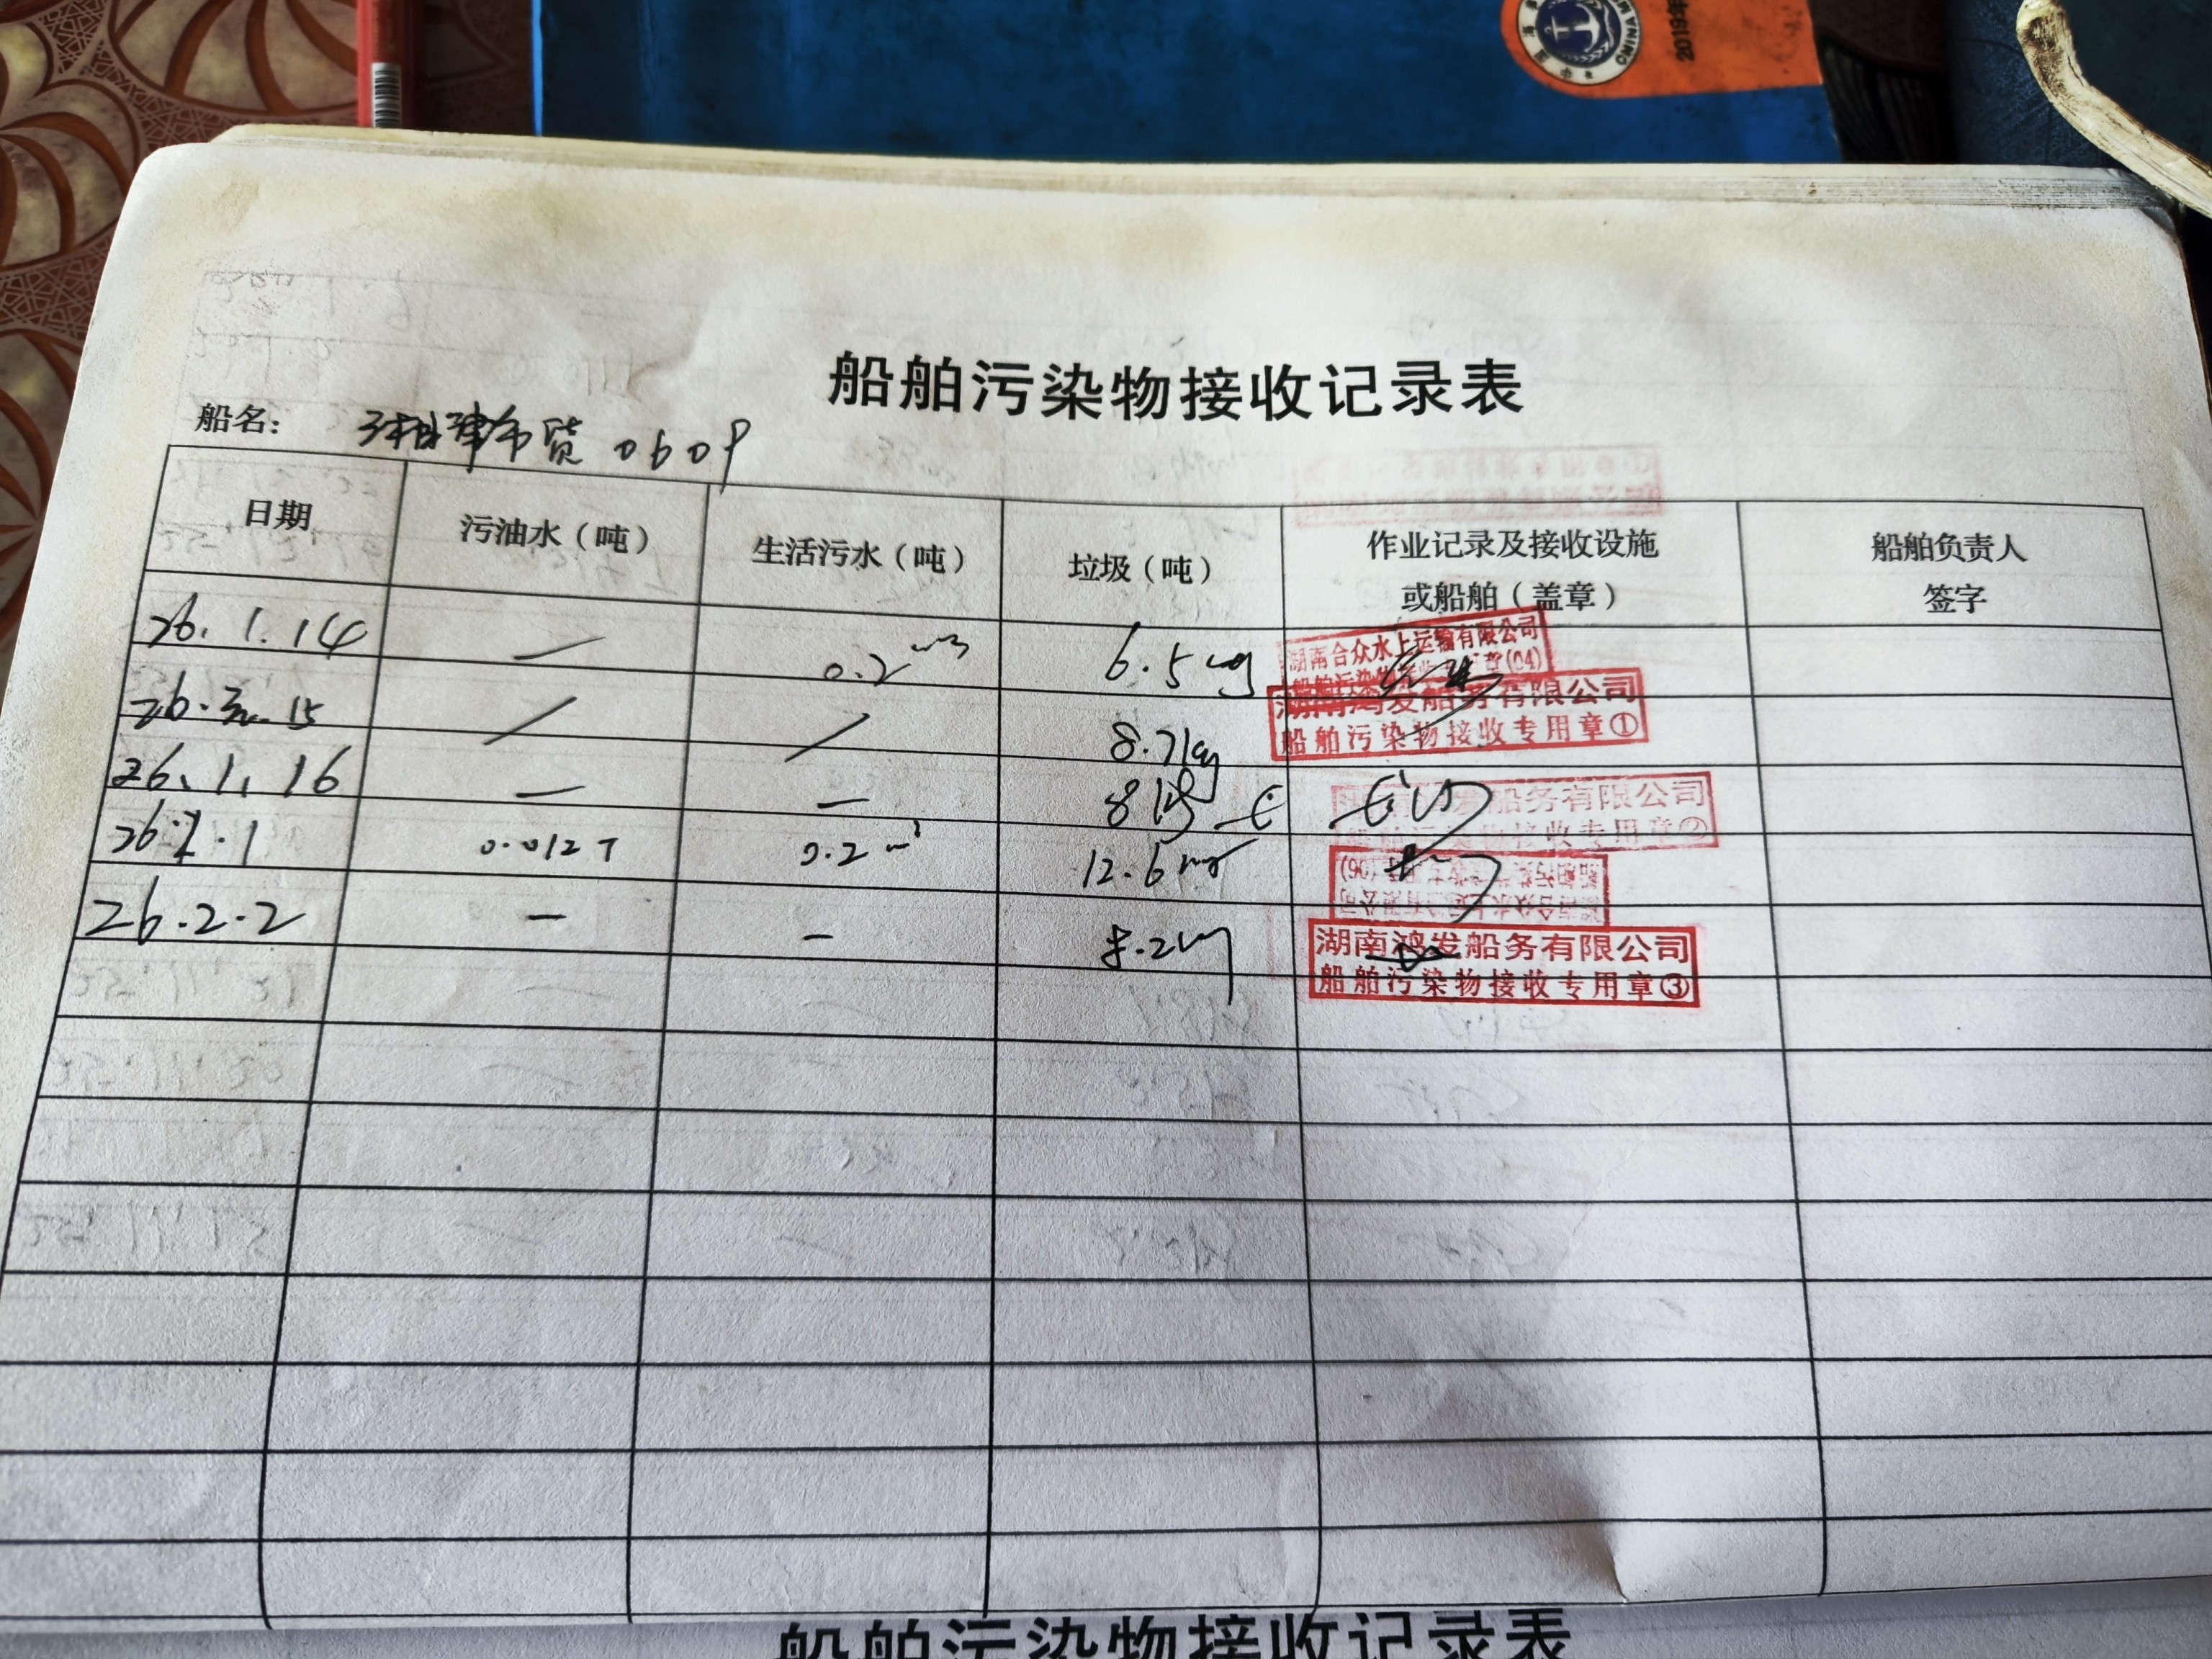 CHINA M
2019年
船舶污染物接收记录表
船名: 湘津市货 0609
日期 污油水（吨） 生活污水（吨） 垃圾（吨） 作业记录及接收设施或船舶（盖章） 船舶负责人签字
26.1.14 — 0.2m³ 6.5kg
湖南合众水上运输有限公司
(04)
26. 15 / / 8.7kg
湖南鸿发船务有限公司
船舶污染物接收专用章①
26.1.16 — — 8kg
船务有限公司
专用章②
26.2.1 0.012T 0.2m³ 12.6kg
(06)
26.2.2 — — 8.2kg
湖南鸿发船务有限公司
船舶污染物接收专用章③
船舶污染物接收记录表